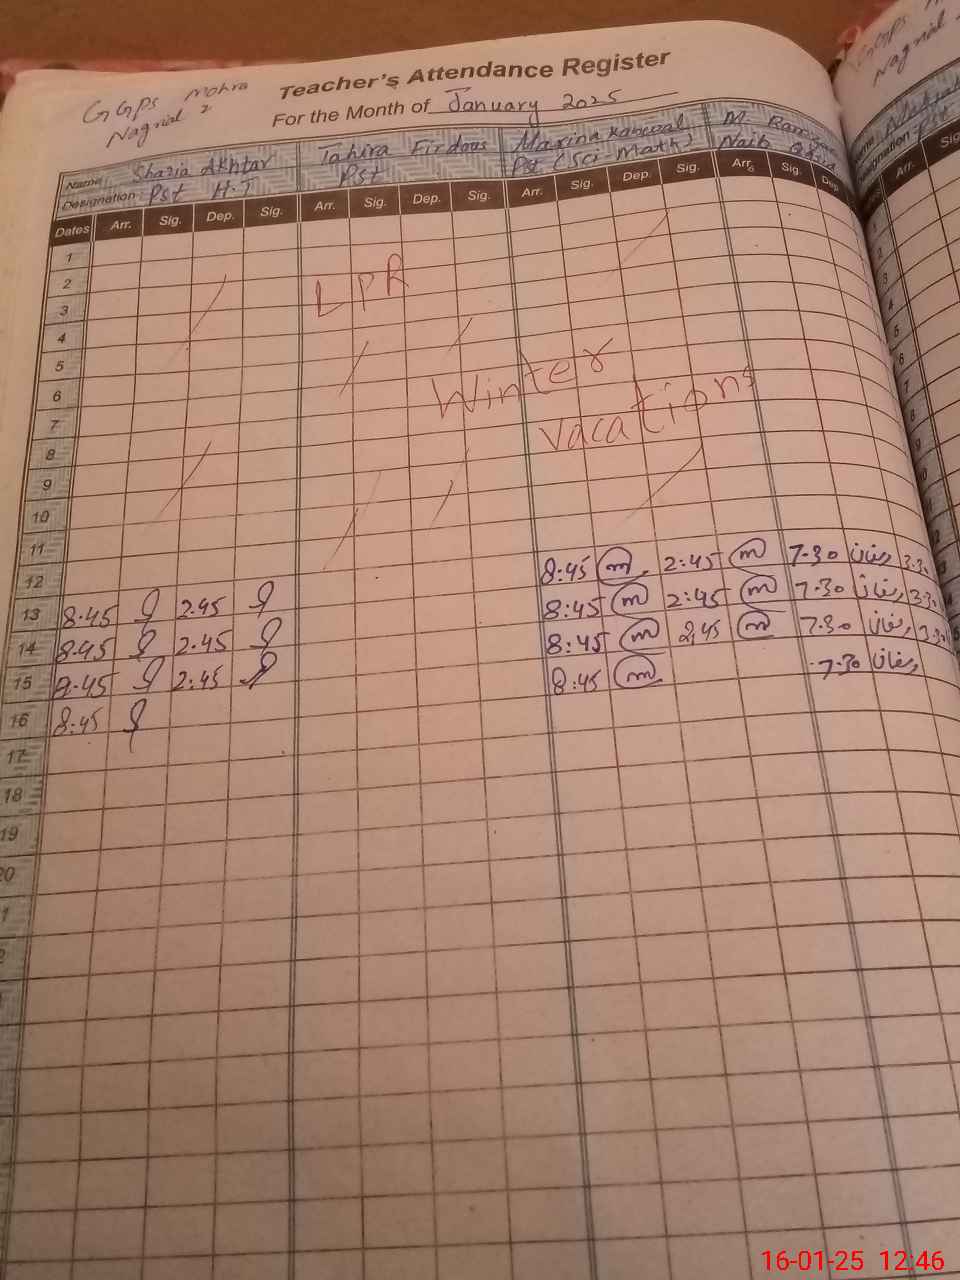 GGPS Mohra
Nagrial 2
Teacher's Attendance Register
For the Month of January 2025
Name: Shazia Akhtar Tahira Firdous Kanwal M. Ramzan
Designation: Pst H.T Pst Pst (Sci-Math) Naib
Dates Arr. Sig. Dep. Sig. Arr. Sig. Dep. Sig. Arr. Sig. Dep. Sig. Arr. Sig. Dep.
1
2
3
LPR
4
5
6
Winter
7
vacations
8
9
10
11
12
13 8:45 2:45 8:45 m 2:45 m 7:30 رمضان 3:30
14 8:45 2:45 8:45 m 2:45 m 7:30 رمضان 3:30
15 8:45 2:45 8:45 m 2,45 m 7:30 رمضان 3:30
16 8:45 8:45 m 7:30 رمضان
17
18
19
20
16-01-25 12:46